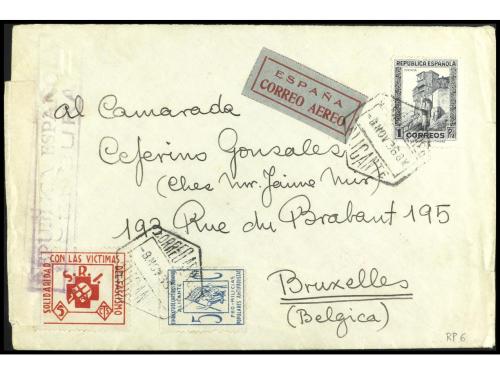 REPUBLICA ESPAÑOLA
1 CORREOS
ESPAÑA
CORREO AEREO
al Camarada
Ceferino Gonsales
(Chez Mr. Jaime Mir)
193 Rue du Brabant 195
Bruxelles
(Belgica)
CORREO
ALICANTE
SOLIDARIDAD CON LAS VICTIMAS DEL FASCISMO
5 CTS
ALICANTE
PRO-MILICIAS
POPULARES ANTIFASCISTAS
5
REPUBLICA ESPAÑOLA
RP 6